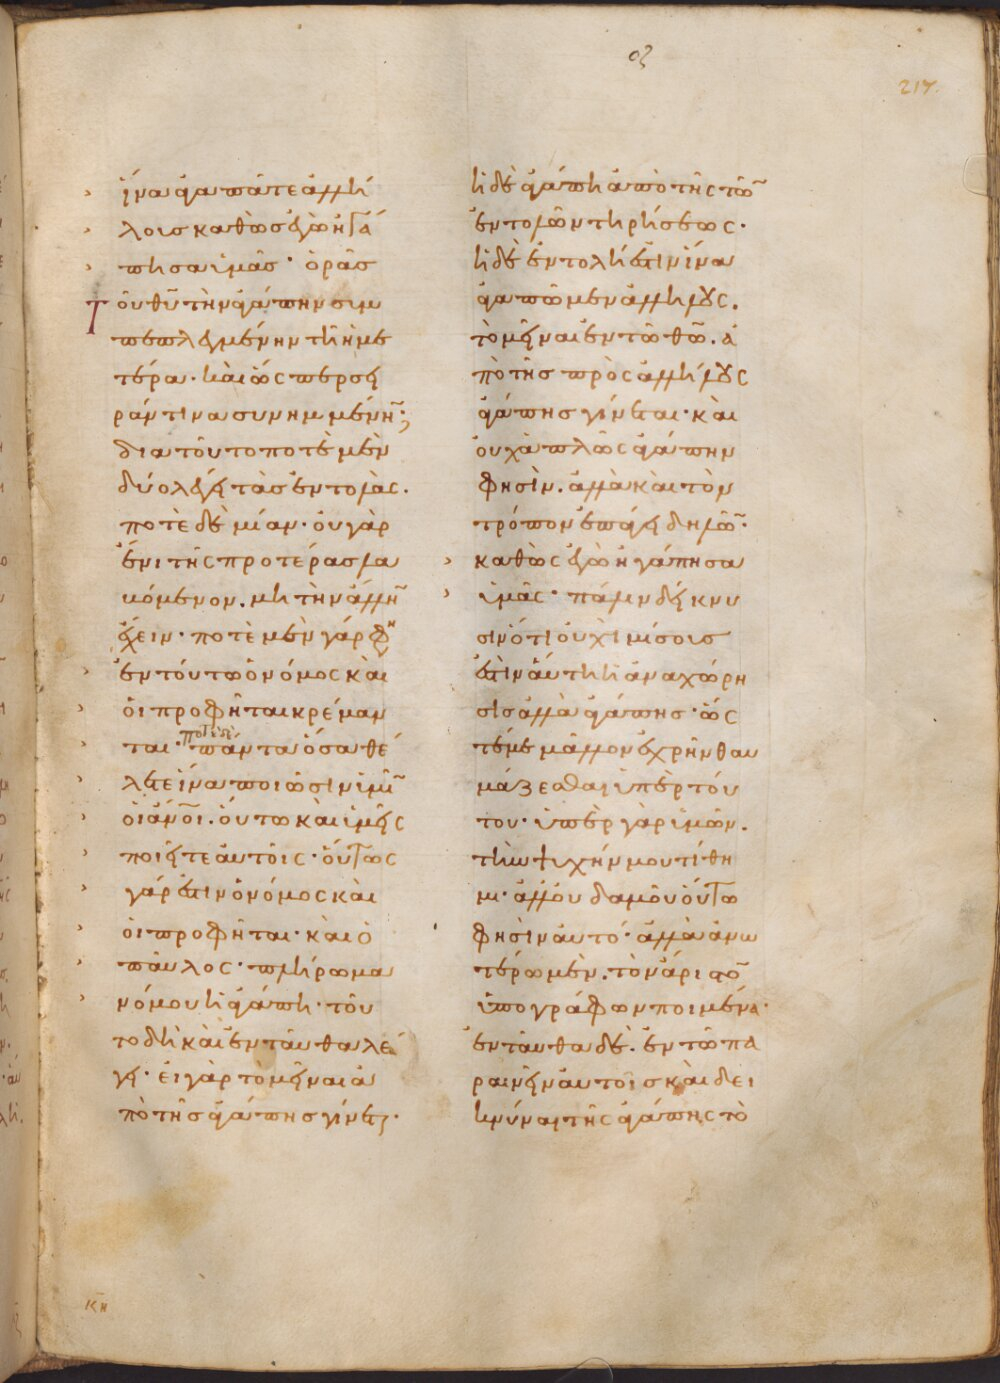 οζ
217.
ἵνα ἀγαπᾶτε ἀλλή
λους καθὼς ἐγὼ ἠγά
πησα ὑμᾶς· ὁρᾶς
τοῦ θυ τὴν ἀγάπην συμ
πεπλεγμένην τῆ ἡμε
τέρα· καὶ ὡς περ σει
ράν τινα συνημμένην;
διατοῦτο ποτὲ μὲν
δύο λέγει τὰς ἐντολὰς.
ποτὲ δὲ μίαν· οὐ γὰρ
ἔνι τῆς προτέρας λα
κόμενον. μὴ τὴν ἄλλην
ἔχειν· ποτὲ μὲν γάρ φη
ἐν τούτω ὁ νόμος καὶ
οἱ προφῆται κρέμαν
ται· ποτὲ δὲ πάντα ὅσα θέ
λετε ἵνα ποιῶσιν ὑμῖν
οἱ ἄνοι. οὕτω καὶ ὑμεῖς
ποιεῖτε αὐτοῖς· οὗτος
γάρ ἐστιν ὁ νόμος καὶ
οἱ προφῆται· καὶ ὁ
παῦλος· πλήρωμα
νόμου ἡ ἀγάπη· τοῦ
το δὴ καὶ ἐνταῦθα λέ
γει· εἰ γὰρ τὸ μεῖναι ἀ
πὸ τῆς ἀγάπης γίνεται·
ἡ δὲ ἀγάπη ἀπὸ τῆς τῶν
ἐντολῶν τηρήσεως·
ἡ δὲ ἐντολή ἐστιν ἵνα
ἀγαπῶμεν ἀλλήλους.
τὸ μεῖναι ἐν τῶ θῶ. ἀ
πὸ τῆς πρὸς ἀλλήλους
ἀγάπης γίνεται· καὶ
οὐχ ἁπλῶς ἀγάπην
φησὶν. ἀλλὰ καὶ τὸν
τρόπον ἐπάγει δηλῶν·
καθὼς ἐγὼ ἠγάπησα
ὑμᾶς· πάλιν δείκνυ
σιν ὅτι οὐχὶ μίσους
ἐστὶν αὕτη ἡ ἀναχώρη
σις ἀλλὰ ἀγάπης· ὥς
τέ με μᾶλλον ἐχρῆν θαυ
μάζεσθαι ὑπὲρ τού
του· ὑπὲρ γὰρ ὑμῶν.
τὴν ψυχήν μου τίθη
μι· ἀλλ' οὐδαμοῦ οὕτω
φησὶν αὐτό· ἀλλὰ ἀνω
τέρω μὲν. τὸν ἄριστον
ὑπογράφων ποιμένα·
ἐνταῦθα δὲ. ἐν τῶ πα
ραινεῖν αὐτοῖς καὶ δει
κνύναι τῆς ἀγάπης τὸ
κη